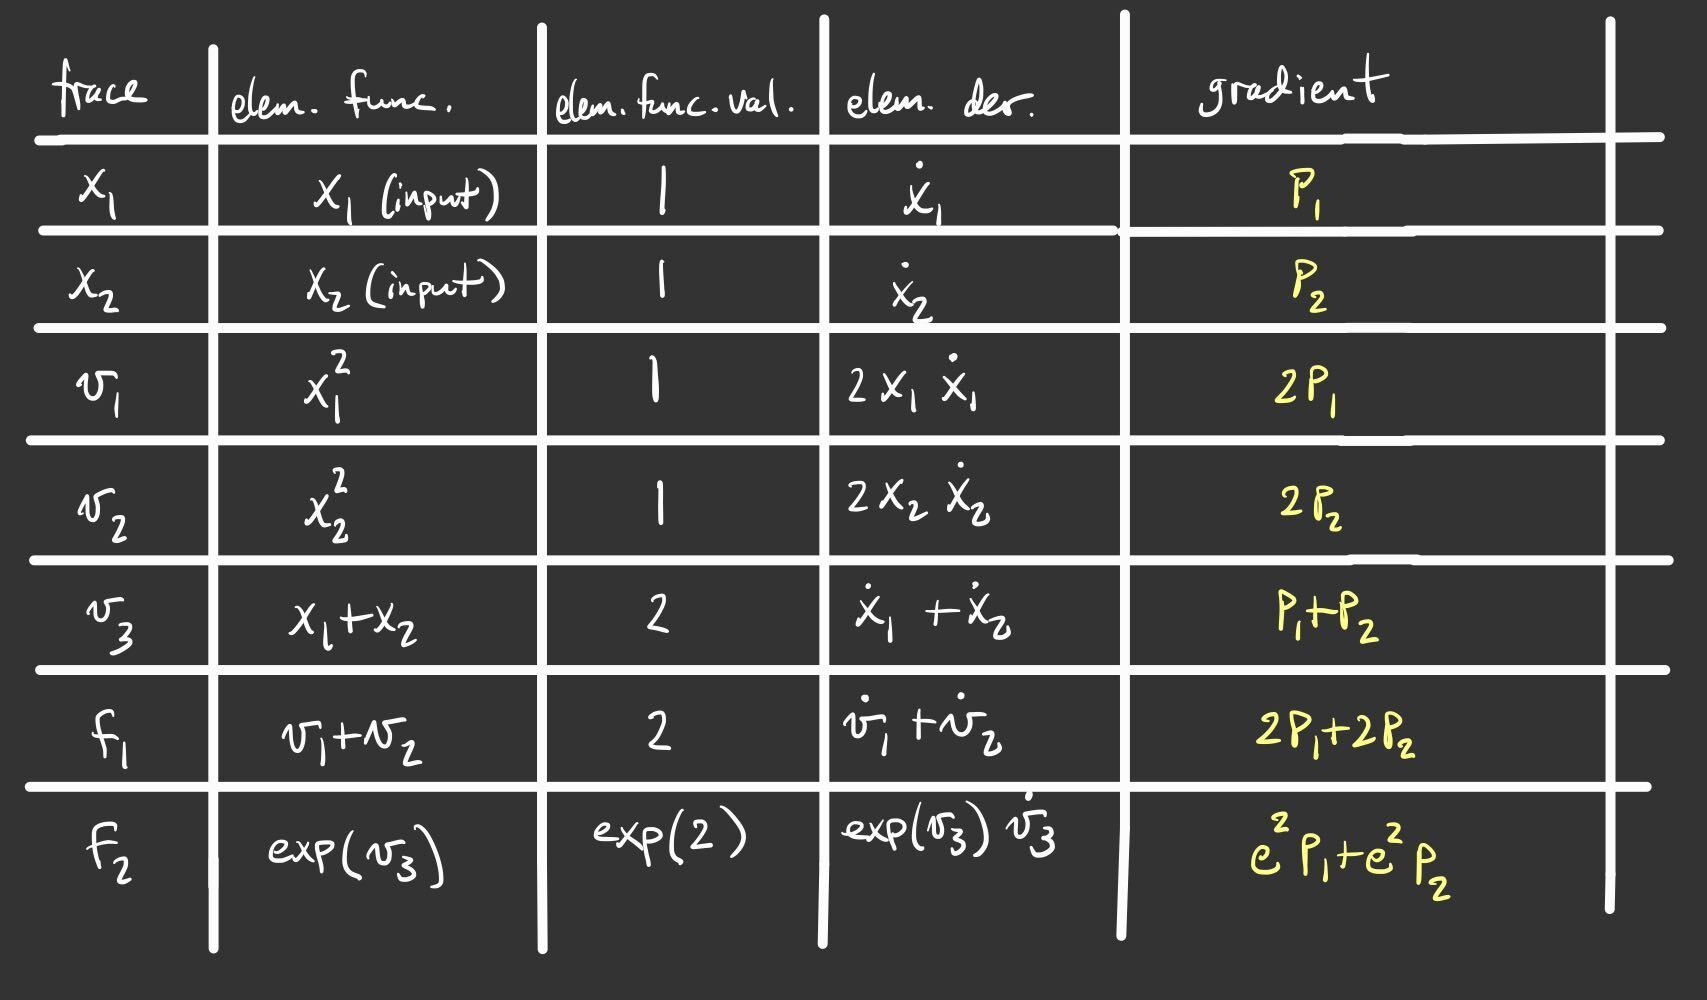 trace elem. func. elem. func. val. elem. der. gradient
x₁ x₁ (input) 1 ẋ₁ P₁
x₂ x₂ (input) 1 ẋ₂ P₂
v₁ x₁² 1 2 x₁ ẋ₁ 2P₁
v₂ x₂² 1 2 x₂ ẋ₂ 2P₂
v₃ x₁+x₂ 2 ẋ₁ + ẋ₂ P₁+P₂
f₁ v₁+v₂ 2 v̇₁ + v̇₂ 2P₁+2P₂
f₂ exp(v₃) exp(2) exp(v₃) v̇₃ e² P₁+e² P₂